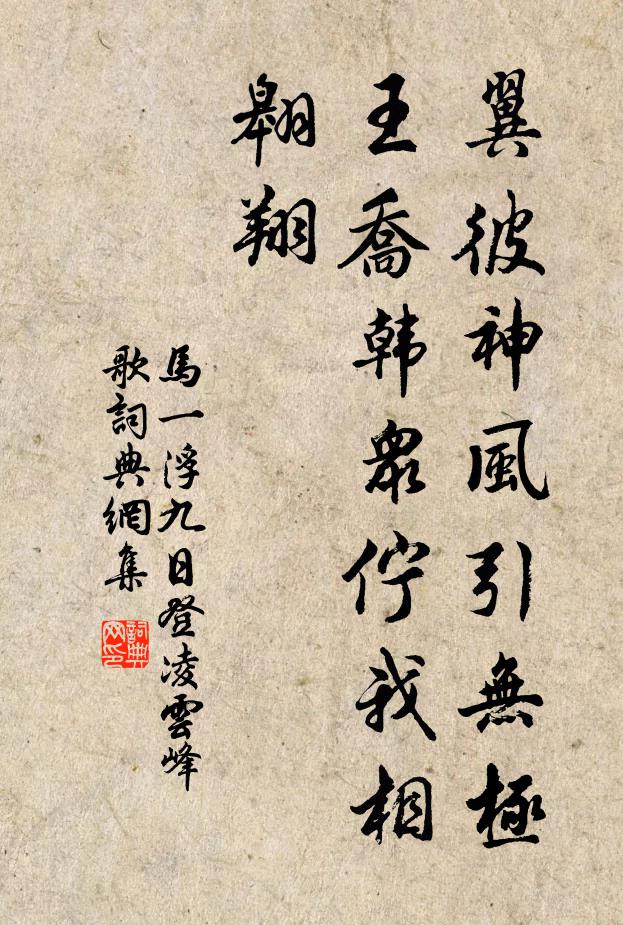 翼彼神風引無極
王喬韩眾佇我相
翱翔
馬一浮九日登凌雲峰
歌詞典網集
詞典
网印